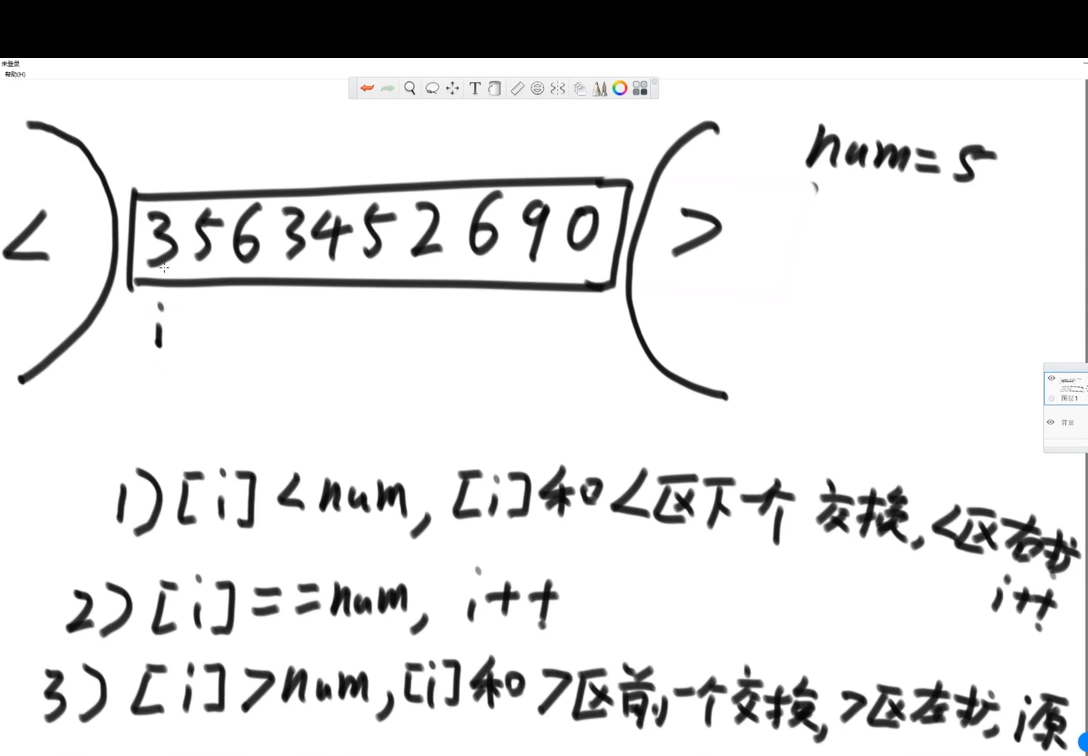 未登录
帮助(H)
T
num=5
< 3 5 6 3 4 5 2 6 9 0 >
i
图层1
背景
1) [i] < num, [i]和<区下一个 交换, <区右扩
i++
2) [i] == num, i++
3) [i] > num, [i]和>区前一个交换, >区左扩, i原